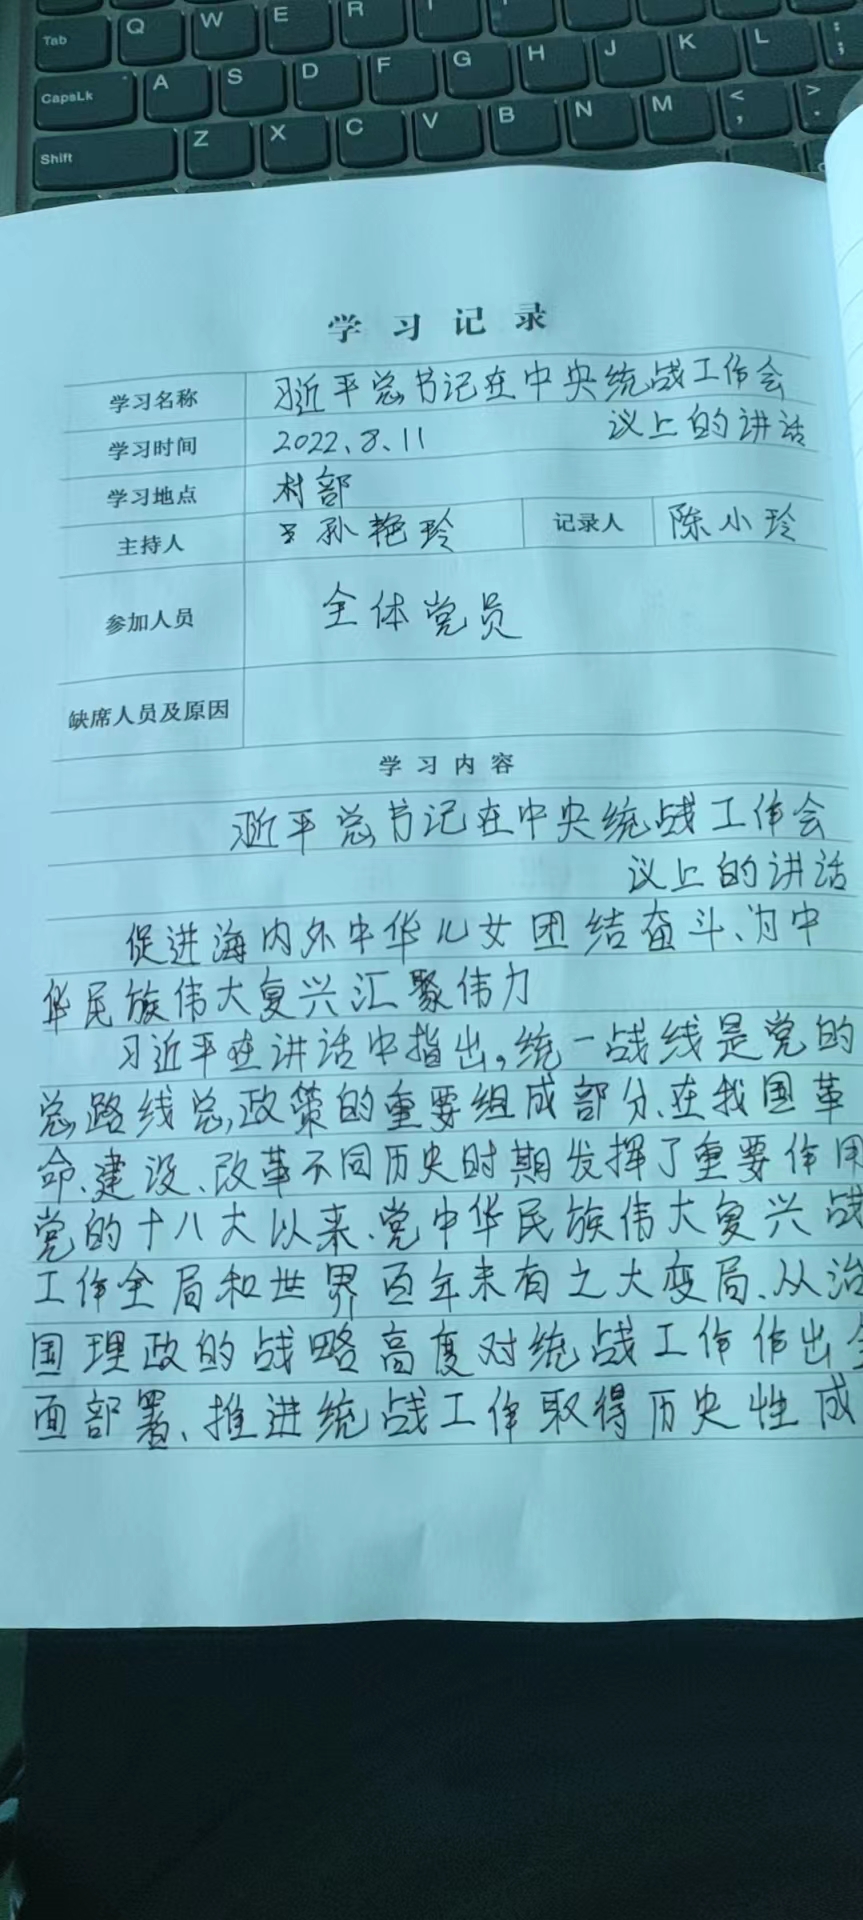 Tab Q W E R T
CapsLk A S D F G H J K L : ;
Shift Z X C V B N M < , > .
学习记录
学习名称 习近平总书记在中央统战工作会
议上的讲话
学习时间 2022、8、11
学习地点 村部
主持人 孙艳玲 记录人 陈小玲
参加人员 全体党员
缺席人员及原因
学习内容
习近平总书记在中央统战工作会
议上的讲话
促进海内外中华儿女团结奋斗、为中
华民族伟大复兴汇聚伟力
习近平在讲话中指出，统一战线是党的
总路线总政策的重要组成部分、在我国革
命、建设、改革不同历史时期发挥了重要作用
党的十八大以来、党中华民族伟大复兴战
工作全局和世界百年未有之大变局、从治
国理政的战略高度对统战工作作出全
面部署、推进统战工作取得历史性成